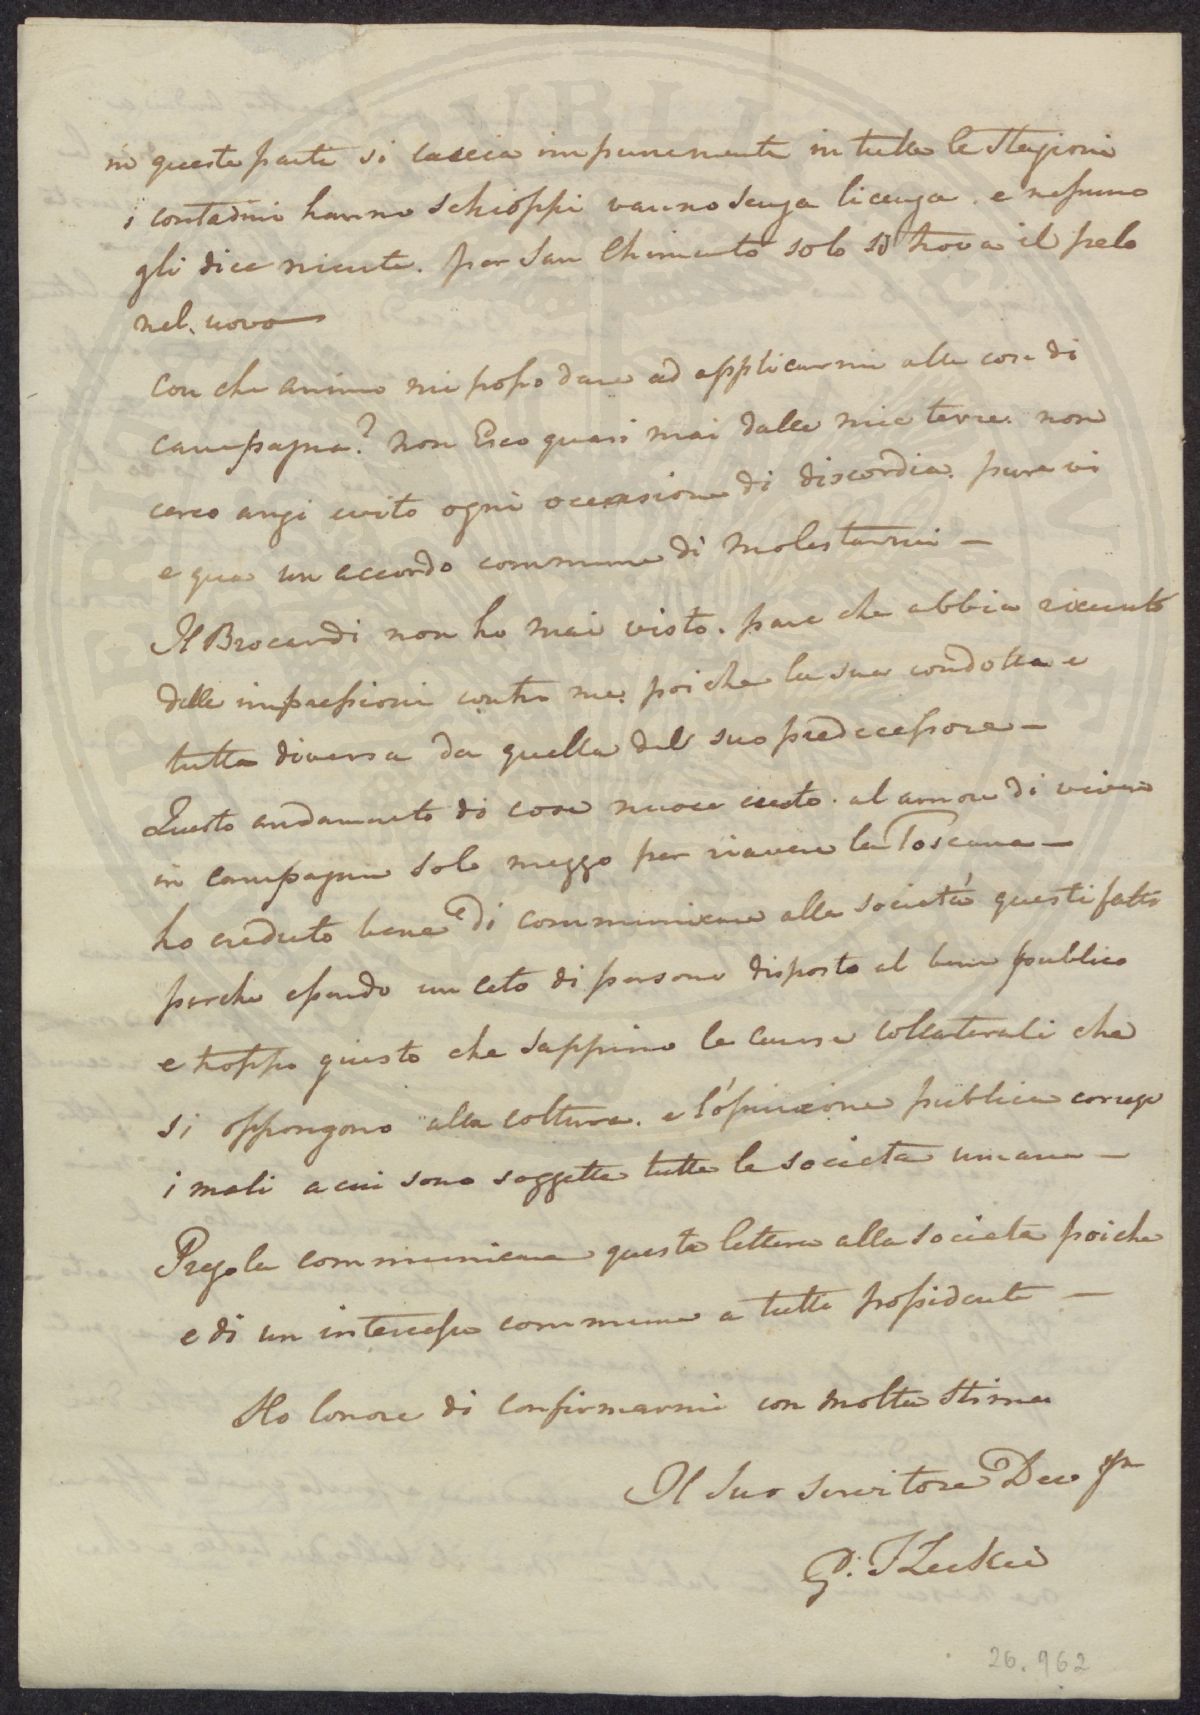 in queste parti si caccia impunemente in tutte le Stagioni
i contadini hanno schioppi vanno senza licenza. e nessuno
gli dice niente. per San Chimento solo si trova il pelo
nel uovo
Con che animo mi posso dare ad applicarmi alle cose di
campagna? non Esco quasi mai dalle mie terre. non
cerco anzi evito ogni occasione di discordia. pure vi
e qua un accordo commune di molestarmi —
Il Brocardi non ho mai visto. pare che abbia ricevuto
delle impressioni contro me. poiche la sua condotta e
tutta diversa da quella del suo predecessore —
Questo andamento di cose nuoce certo. al amore di vivere
in campagna solo mezzo per riavere la Toscana —
ho creduto bene di communicare alla società questi fatti
perche essendo un ceto di persone disposto al bene publico
e troppo giusto che sappino le cause collaterali che
si oppongono alla coltura. e l'opinione publica corregge
i mali a cui sono soggette tutte le società umane —
Prego la communicare questa lettera alla società poiche
e di un interesse commune a tutti possidenti —
Ho lonore di confirmarmi con molta stima
Il Suo Servitore Dev
G. F Leckie
26.962